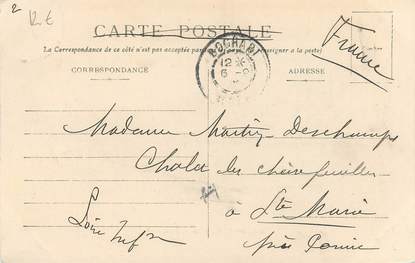 2
12 €
CARTE POSTALE
La Correspondance de ce côté n'est pas acceptée par
signer à la poste)
CORRESPONDANCE
ADRESSE
ROCHART
12
6
France
Madame Martin-Deschamps
Chalet des chèvrefeuilles
à Ste Marie
près Pornic
Loire Infre